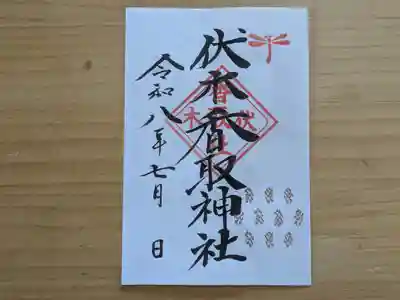 伏木香取神社
令和八年七月 日